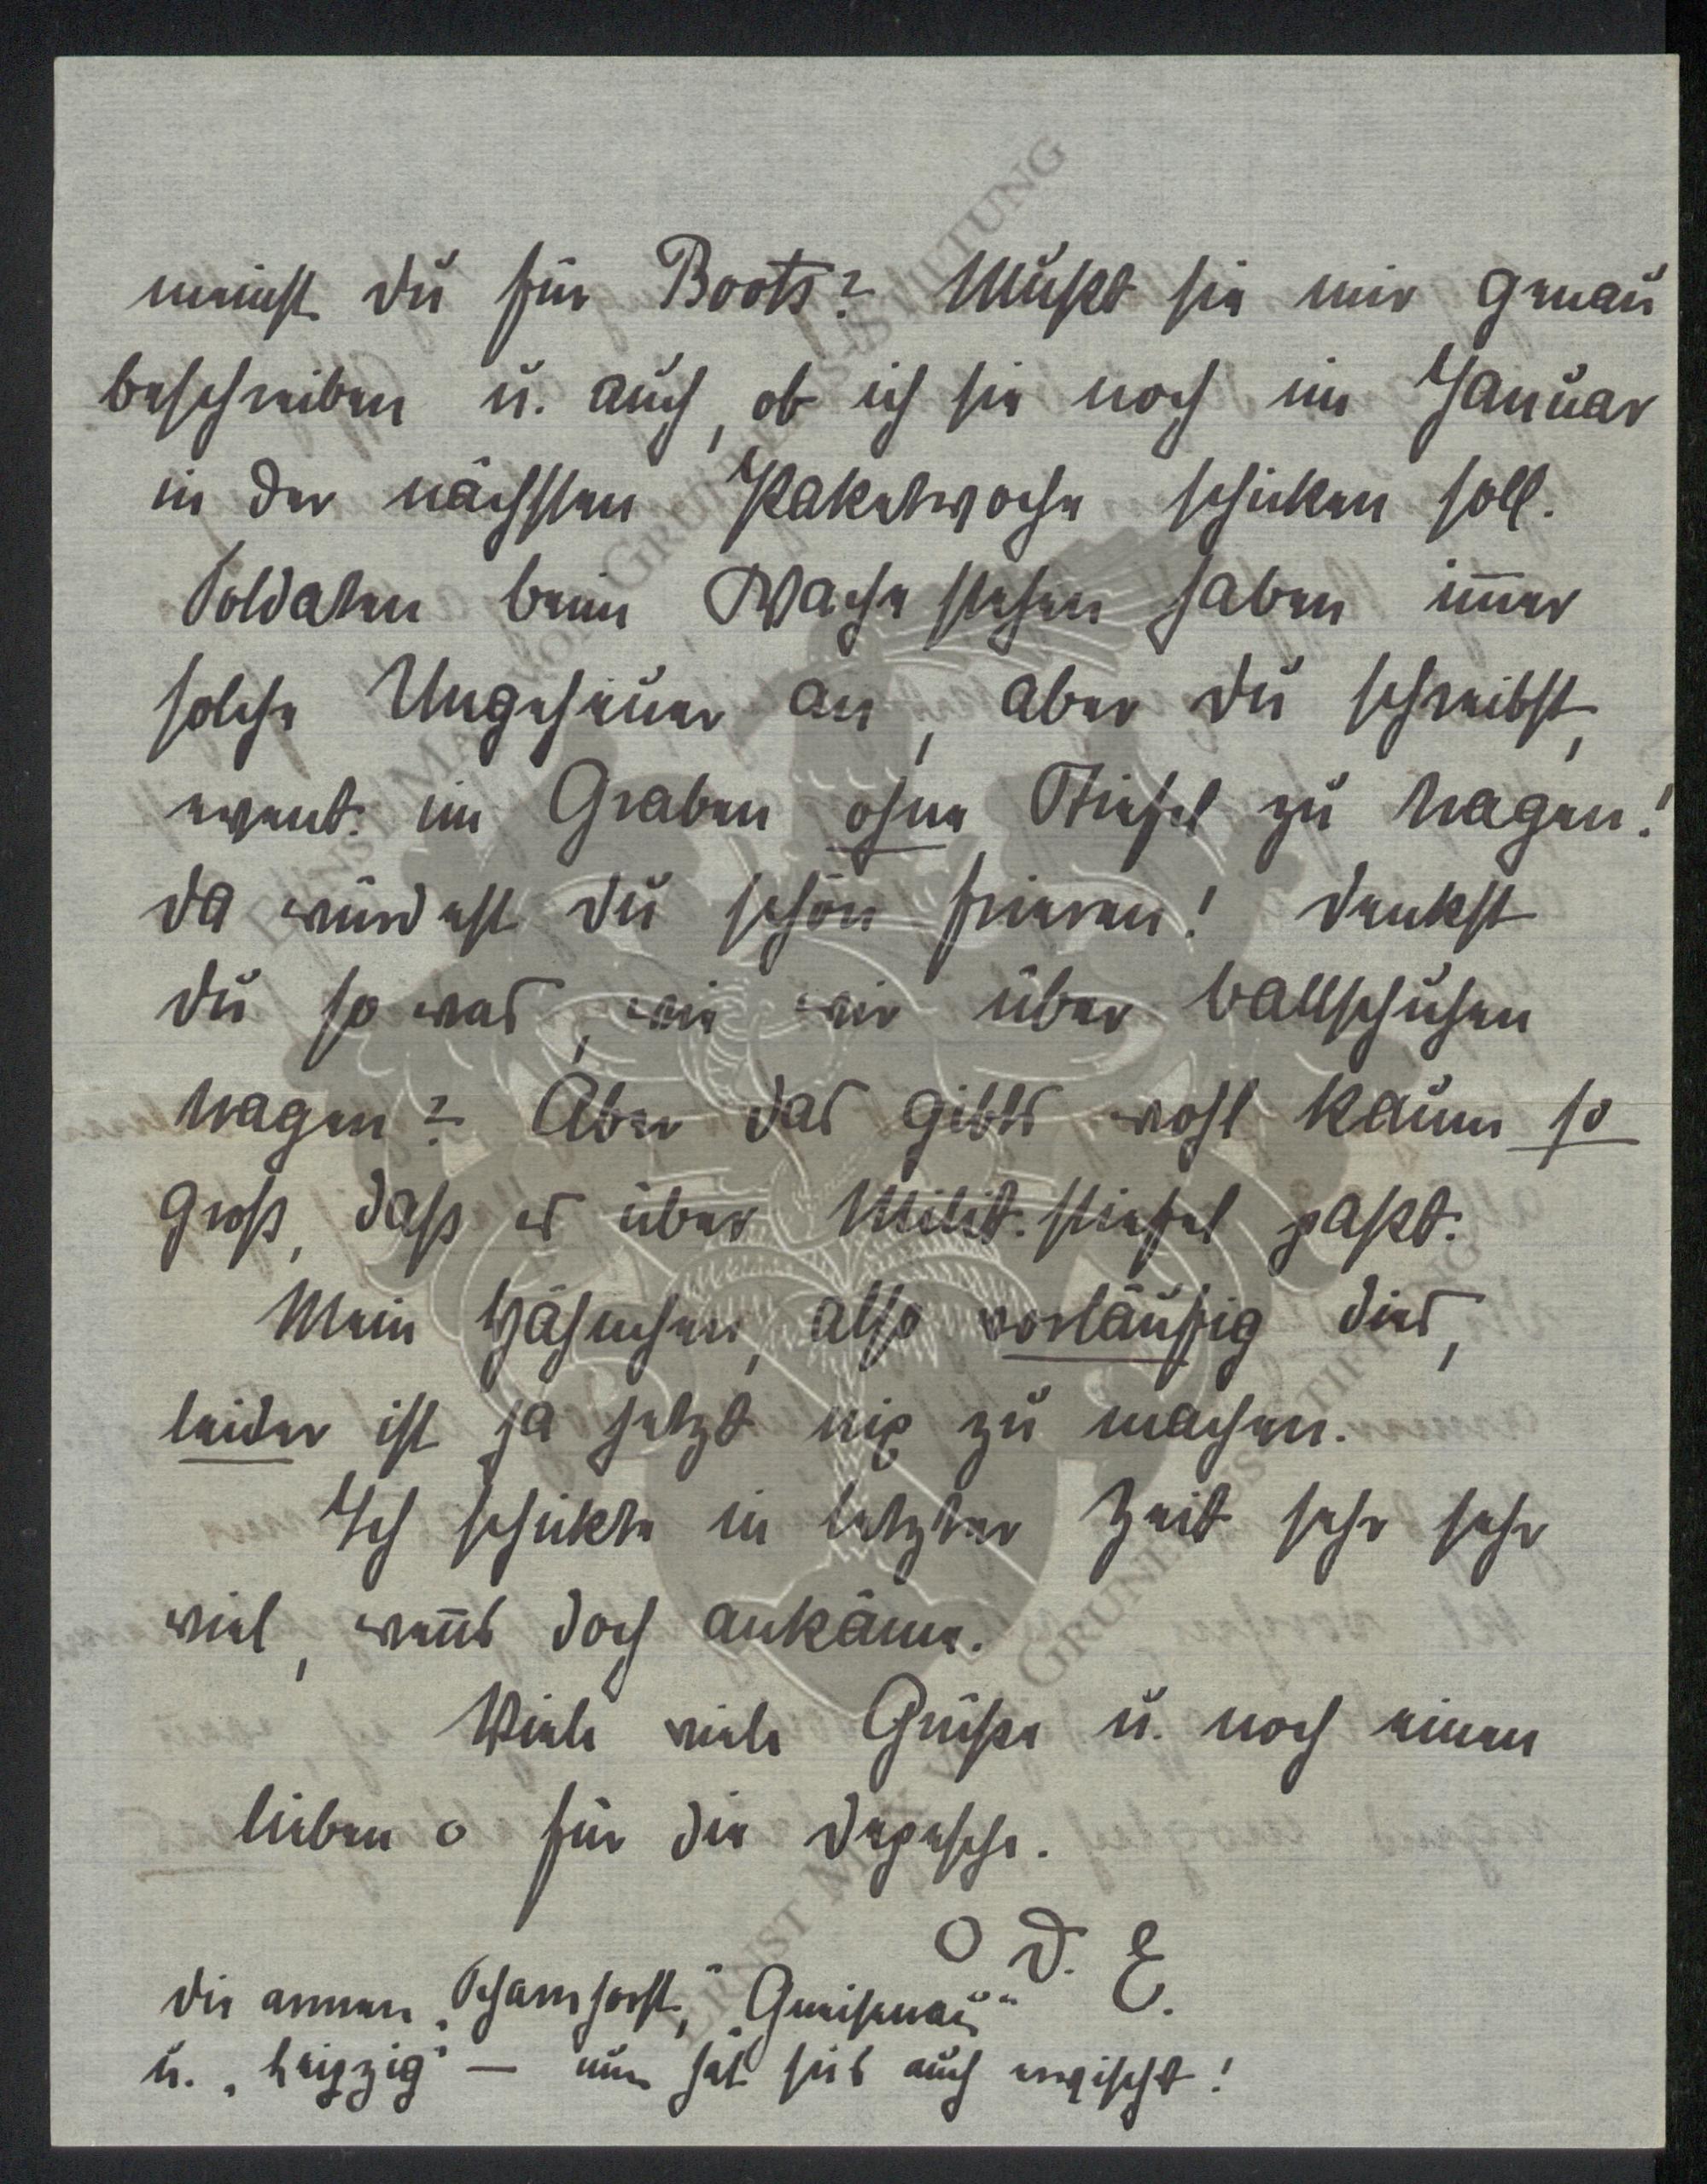 meinst du für Boots? Mußt sie mir genau
beschreiben u. auch, ob ich sie noch im Januar
in der nächsten Paketwoche schicken soll.
Soldaten beim Wache stehen haben im̅er
solche Ungeheuer an, aber du schreibst,
event. im Graben ohne Stiefel zu tragen!
da würdest du schön frieren! denkst
du so was, wie wir über Ballschuhen
tragen? Aber das gibts wohl kaum so
groß, daß es über Milit. stiefel paßt.
Mein Hähnchen, also vorläufig dies,
leider ist ja jetzt nix zu machen.
Ich schickte in letzter Zeit sehr sehr
viel, wen̅s doch ankäme.
Viele viele Grüße u. noch einen
lieben o für die Depesche.
O D. E.
die armen „Scharnhorst", „Gneisenau"
u. „Leipzig" — nun hat sies auch erwischt!
ERNST MAX VON GRUNELIUS-STIFTUNG
ERNST MAX VON GRUNELIUS-STIFTUNG